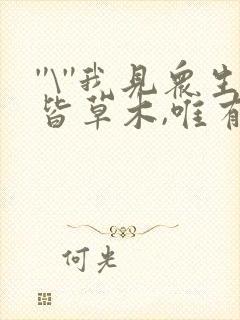 "\"我見眾生
皆草木,唯有
何光